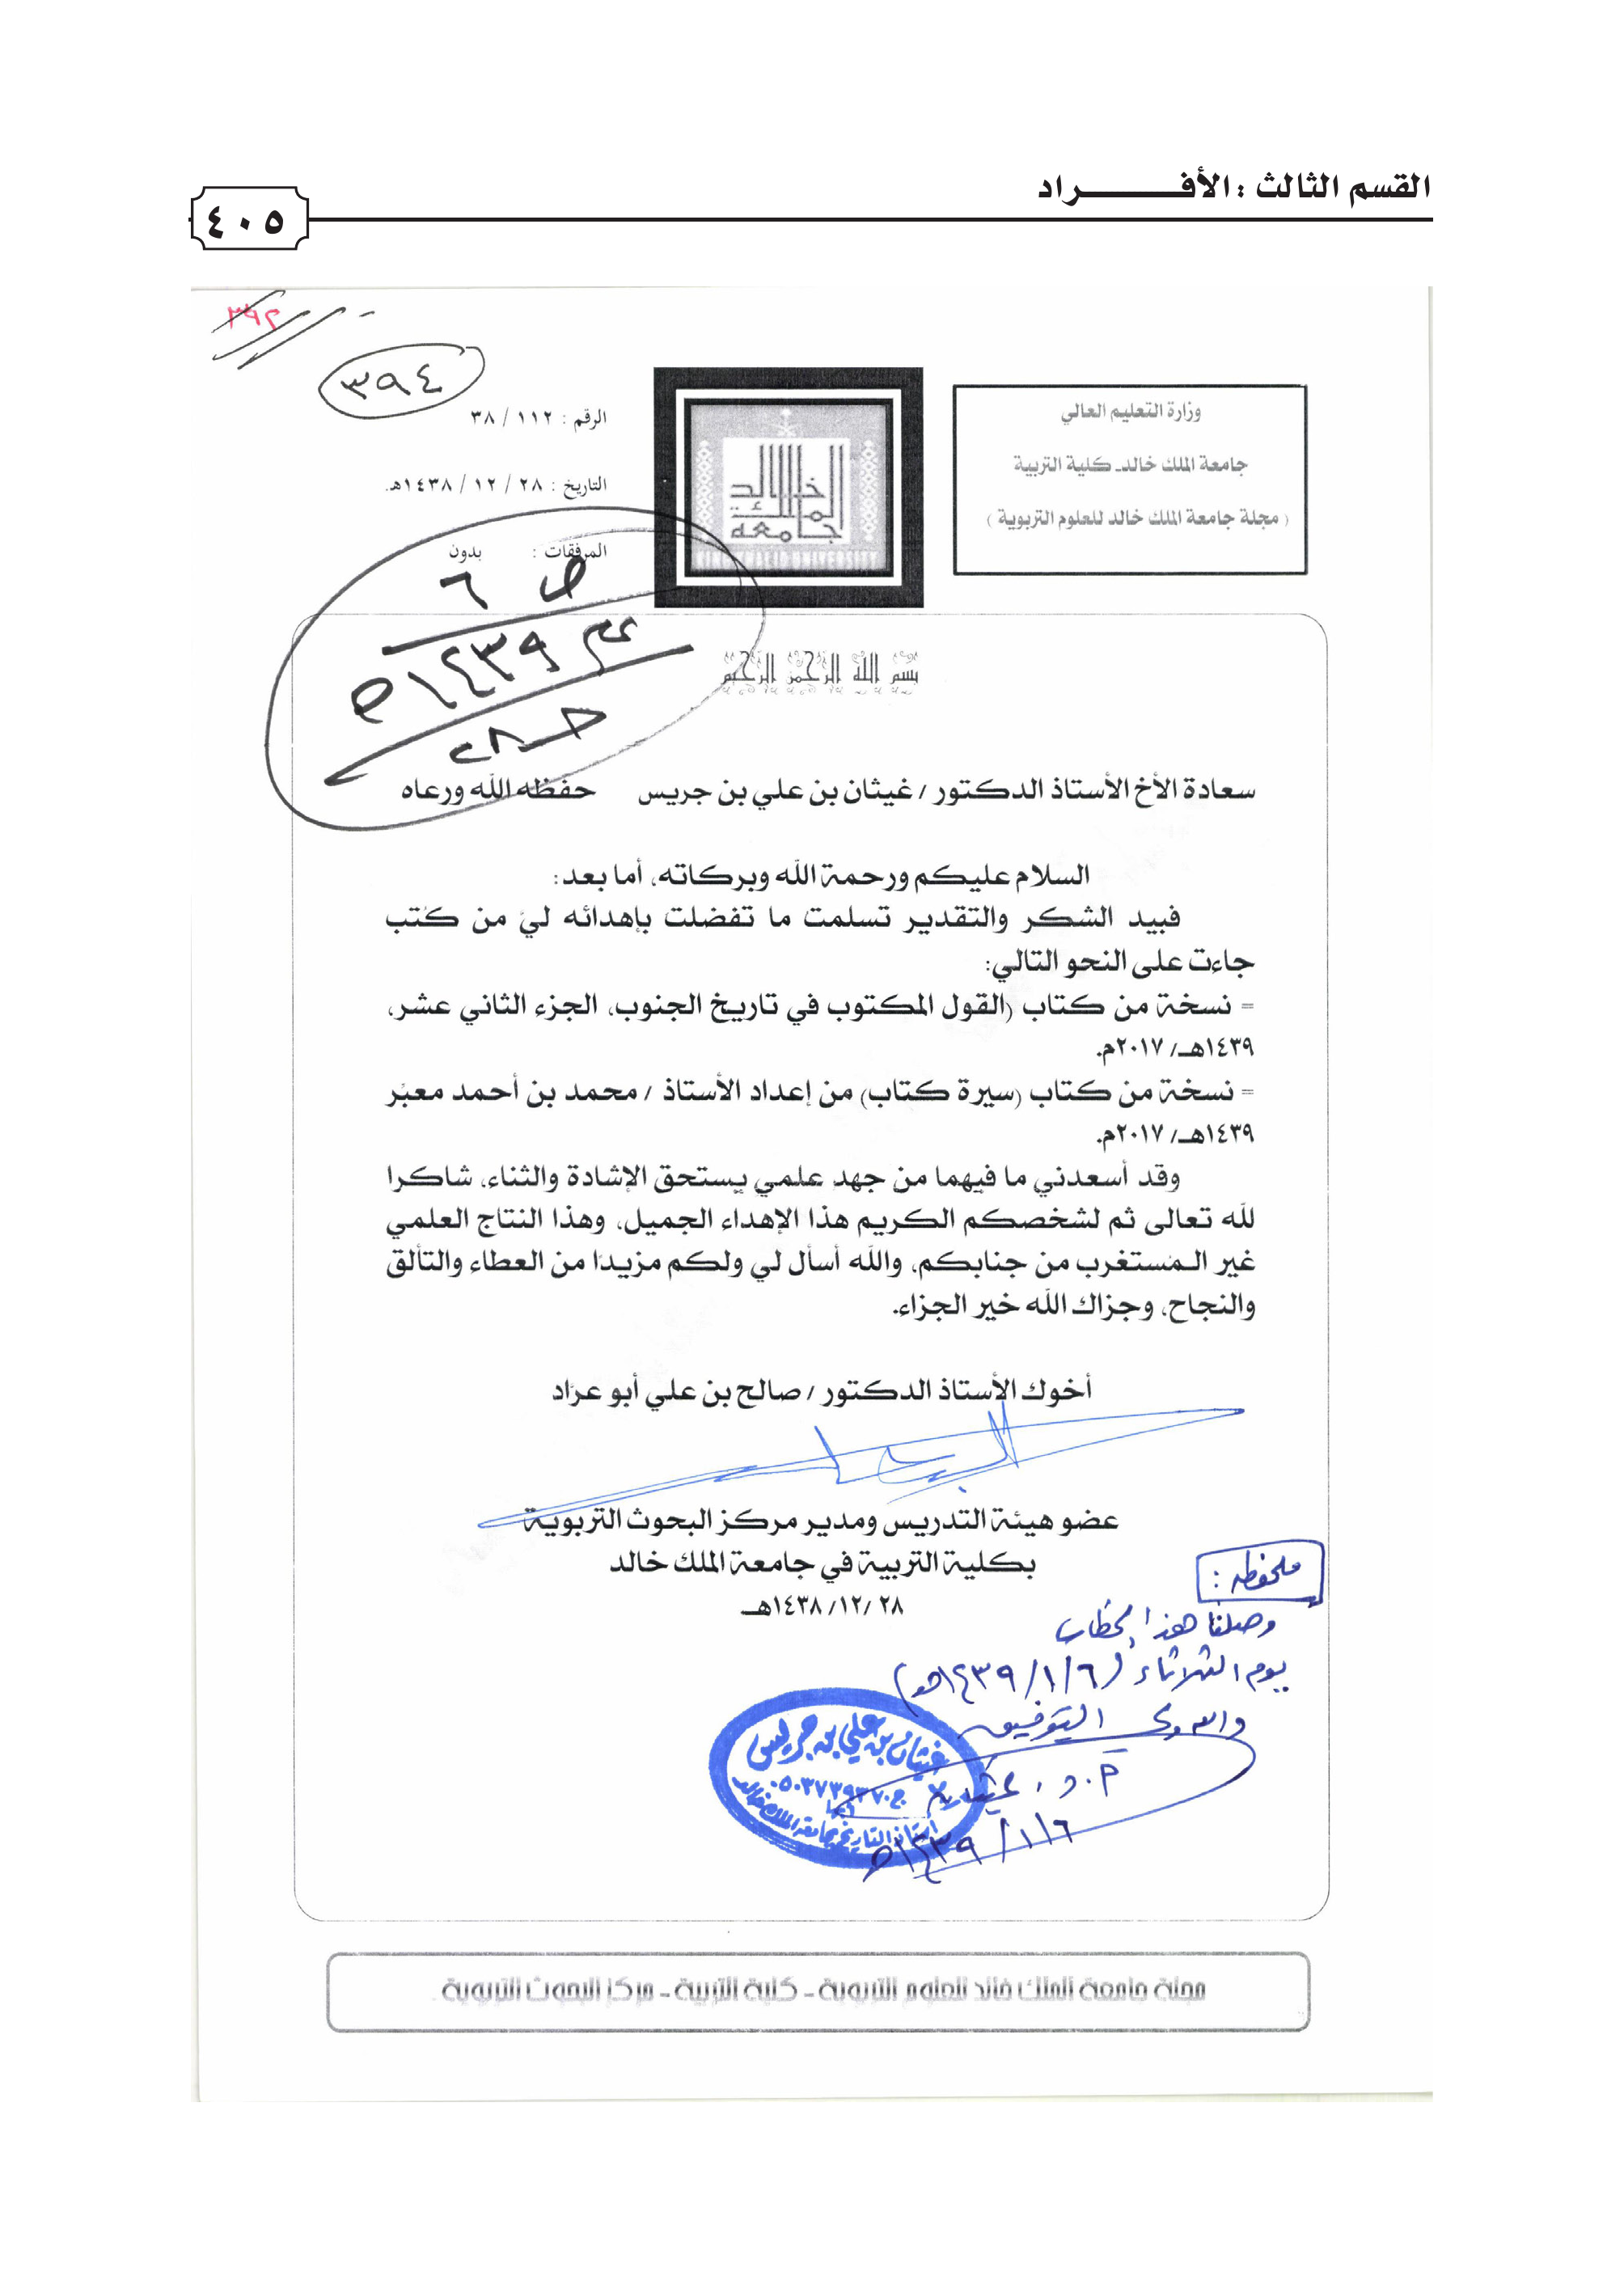 القسم الثالث : الأفـــــــراد
٤٠٥
٣٩٤
وزارة التعليم العالي
جامعة الملك خالد ـ كلية التربية
( مجلة جامعة الملك خالد للعلوم التربوية )
الرقم : ١١٢ / ٣٨
التاريخ : ٢٨ / ١٢ / ١٤٣٨هـ.
المرفقات : بدون
ص ٦
١٤٣٩هـ
بسم الله الرحمن الرحيم
سعادة الأخ الأستاذ الدكتور / غيثان بن علي بن جريس حفظه الله ورعاه
السلام عليكم ورحمة الله وبركاته، أما بعد:
فبيد الشكر والتقدير تسلمت ما تفضلت بإهدائه لي من كتب
جاءت على النحو التالي:
= نسخة من كتاب (القول المكتوب في تاريخ الجنوب، الجزء الثاني عشر،
١٤٣٩هـ/ ٢٠١٧م.
= نسخة من كتاب (سيرة كتاب) من إعداد الأستاذ / محمد بن أحمد معبّر
١٤٣٩هـ/ ٢٠١٧م.
وقد أسعدني ما فيهما من جهد علمي يستحق الإشادة والثناء، شاكرا
لله تعالى ثم لشخصكم الكريم هذا الإهداء الجميل، وهذا النتاج العلمي
غير المستغرب من جنابكم، والله أسأل لي ولكم مزيدًا من العطاء والتألق
والنجاح، وجزاك الله خير الجزاء.
أخوك الأستاذ الدكتور / صالح بن علي أبو عرّاد
عضو هيئة التدريس ومدير مركز البحوث التربوية
بكلية التربية في جامعة الملك خالد
٢٨ /١٢/ ١٤٣٨هـ
ملحوظة :
وصلنا هذا الخطاب
يوم الثلاثاء (١٤٣٩/١/٦هـ)
والله ولي التوفيق
غيثان بن علي بن جريس
ج ٠٥٠٣٧٣٩٣٧٠
أستاذ التاريخ بجامعة الملك خالد
١٤٣٩/١/٦هـ
مجلة جامعة الملك خالد للعلوم التربوية - كلية التربية - مركز البحوث التربوية